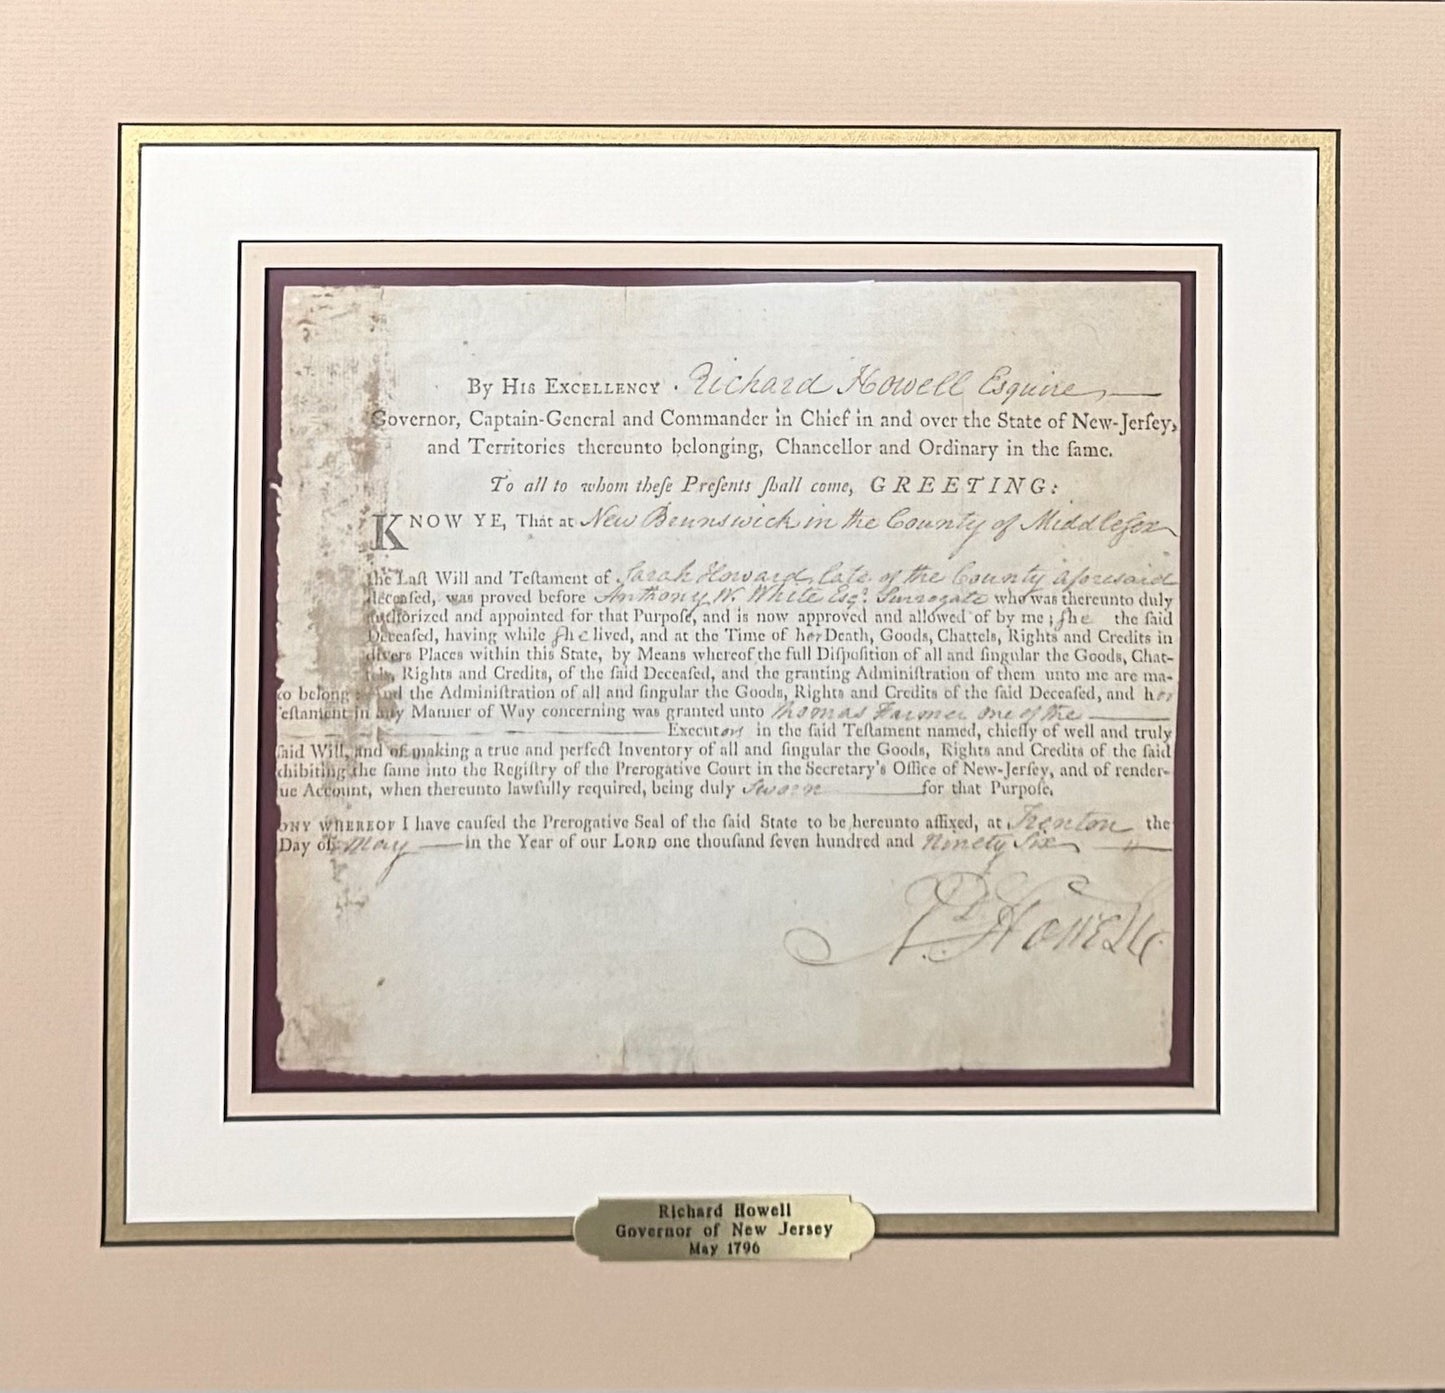 By His Excellency Richard Howell Esquire
Governor, Captain-General and Commander in Chief in and over the State of New-Jerſey,
and Territories thereunto belonging, Chancellor and Ordinary in the ſame.
To all to whom theſe Preſents ſhall come, GREETING:
KNOW YE, That at New Brunswick in the County of Middlesex
the Laſt Will and Teſtament of Sarah Howard, late of the County aforesaid
deceaſed, was proved before Anthony W. White Esqr. Surrogate who was thereunto duly
authorized and appointed for that Purpoſe, and is now approved and allowed of by me; ſhe the ſaid
Deceaſed, having while ſhe lived, and at the Time of her Death, Goods, Chattels, Rights and Credits in
divers Places within this State, by Means whereof the full Diſpoſition of all and ſingular the Goods, Chat-
tels, Rights and Credits, of the ſaid Deceaſed, and the granting Adminiſtration of them unto me are ma-
to belong: And the Adminiſtration of all and ſingular the Goods, Rights and Credits of the ſaid Deceaſed, and her
Teſtament in any Manner of Way concerning was granted unto Thomas Farmer one of the
Executors in the ſaid Teſtament named, chiefly of well and truly
ſaid Will, and of making a true and perfect Inventory of all and ſingular the Goods, Rights and Credits of the ſaid
xhibiting the ſame into the Regiſtry of the Prerogative Court in the Secretary's Office of New-Jerſey, and of render-
ue Account, when thereunto lawfully required, being duly Sworn for that Purpoſe.
ONY WHEREOF I have cauſed the Prerogative Seal of the ſaid State to be hereunto affixed, at Trenton the
Day of May in the Year of our Lord one thouſand ſeven hundred and Ninety Six
Rd. Howell
Richard Howell
Governor of New Jersey
May 1796